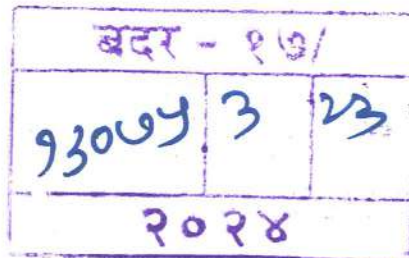 बदर - १७/
१३०७५ ३ २३
२०२४